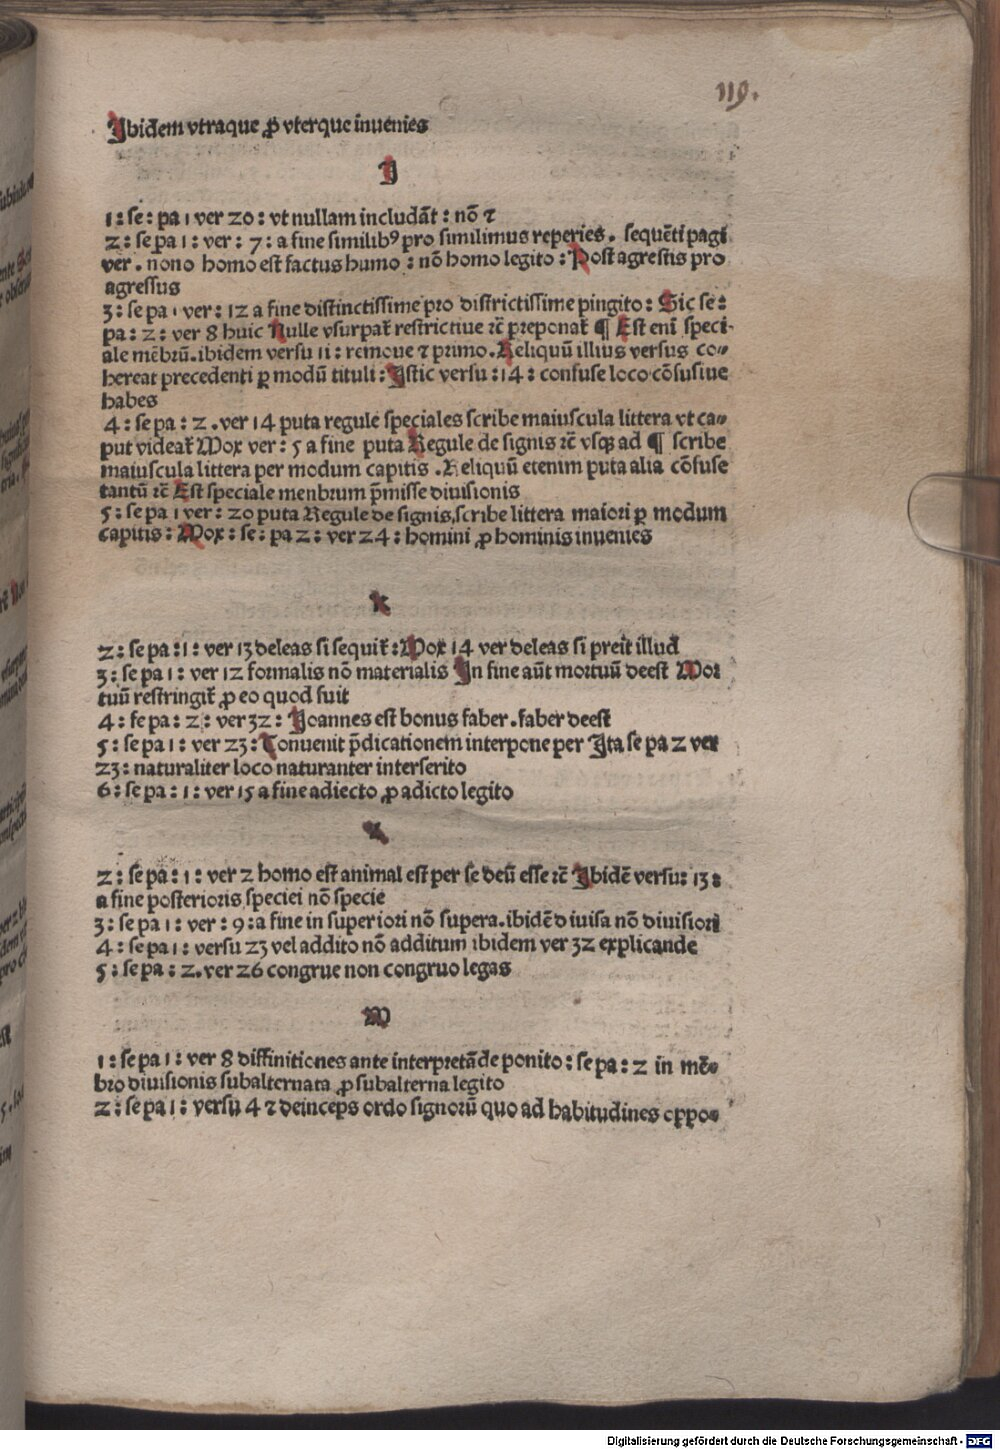 119.
Ibidem vtraque ꝓ vterque inuenies
I
1 : se : pa 1 ver 20 : vt nullam includāt : nō ⁊
2 : se pa 1 : ver : 7 : a fine similibꝰ pro similimus reperies . sequēti pagi
ver . nono homo est factus humo : nō homo legito : Post agrestis pro
agressus
3 : se pa 1 ver : 12 a fine distinctissime pro districtissime pingito : Sic se :
pa : 2 : ver 8 huic Nulle vsurpat̄ restrictiue ⁊c̄ preponat̄ ¶ Est eni speci-
ale mēbrū . ibidem versu 11 : remoue ⁊ primo . Reliquū illius versus co-
hereat precedenti ꝑ modū tituli : Istic versu : 14 : confuse loco cōfusiue
habes
4 : se pa : 2 . ver 14 puta regule speciales scribe maiuscula littera vt ca-
put videat̄ Mox ver : 5 a fine puta Regule de signis ⁊c̄ vsqꝫ ad ¶ scribe
maiuscula littera per modum capitis . Reliquū etenim puta alia cōfuse
tantū ⁊c̄ Est speciale menbrum p̄misse diuisionis
5 : se pa 1 ver : 20 puta Regule de signis, scribe littera maiori ꝑ modum
capitis : Mox : se : pa 2 : ver 24 : homini ꝓ hominis inuenies
K
2 : se pa : 1 : ver 13 deleas si sequit̄ : Mox 14 ver deleas si preit illud
3 : se pa 1 : ver 12 formalis nō materialis In fine aūt mortuū deest Mor
tuū restringit̄ ꝓ eo quod fuit
4 : se pa : 2 : ver 32 : Joannes est bonus faber . faber deest
5 : se pa 1 : ver 23 : Conuenit p̄dicationem interpone per Ita se pa 2 ver
23 : naturaliter loco naturanter interserito
6 : se pa : 1 : ver 15 a fine adiecto ꝓ adicto legito
2 : se pa : 1 : ver 2 homo est animal est per se deū esse ⁊c̄ Ibidē versu : 13 :
a fine posterioris speciei nō specie
3 : se pa 1 : ver : 9 : a fine in superiori nō supera . ibidē diuisa nō diuisiori
4 : se pa 1 : versu 23 vel addito nō additum ibidem ver 32 explicande
5 : se pa : 2 . ver 26 congrue non congruo legas
M
1 : se pa 1 : ver 8 diffinitiones ante interpretāde ponito : se pa : 2 in mē-
bro diuisionis subalternata ꝓ subalterna legito
2 : se pa 1 : versu 4 ⁊ deinceps ordo signorū quo ad habitudines oppo-
Digitalisierung gefördert durch die Deutsche Forschungsgemeinschaft - DFG